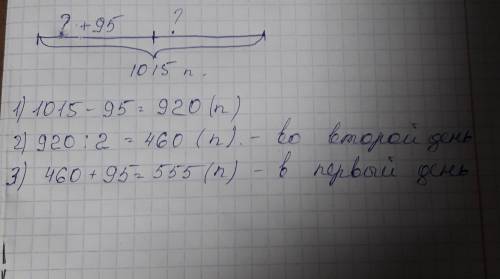 ? +95 ?
1015 п.
1) 1015 - 95 = 920 (п)
2) 920 : 2 = 460 (п). - во второй день
3) 460 + 95 = 555 (п) - в первый день